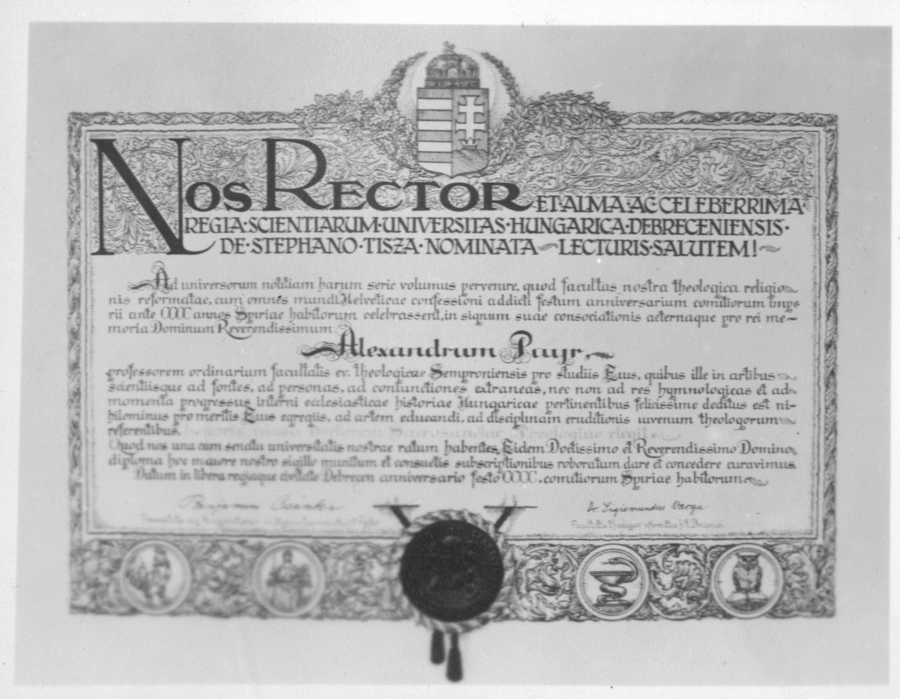 NOS RECTOR ET·ALMA·AC·CELEBERRIMA
REGIA·SCIENTIARUM·UNIVERSITAS·HUNGARICA·DEBRECENIENSIS·
DE·STEPHANO·TISZA·NOMINATA LECTURIS·SALUTEM!
Ad universorum notitiam harum serie volumus pervenire, quod facultas nostra theologica religio
nis reformatae, cum omnes mundi Helveticae confessioni addicti festum anniversarium comitiorum impe
rii ante CCCC annos Spiriae habitorum celebrassent, in signum suae consociationis aeternaque pro rei me–
moria Dominum Reverendissimum
Alexandrum Payr,
professorem ordinarium facultatis ev. theologicae Semproniensis pro studiis Eius, quibus ille in artibus
scientiisque ad fontes, ad personas, ad coniunctiones extraneas, nec non ad res hymnologicas et ad
momenta progressus interni ecclesiasticae historiae Hungaricae pertinentibus felicissime deditus est ni–
hilominus pro meritis Eius egregiis, ad artem educandi, ad disciplinam eruditionis iuvenum theologorum
referentibus.
Theologiae elegit
Quod nos una cum senatu universitatis nostrae ratum habentes, Eidem Doctissimo et Reverendissimo Domino
diploma hoc maiore nostro sigillo munitum et consuetis subscriptionibus roboratum dare et concedere curavimus
Datum in libera regiaque civitate Debrecen anniversario festo CCCC. comitiorum Spiriae habitorum
Dr. Sigismundus Varga